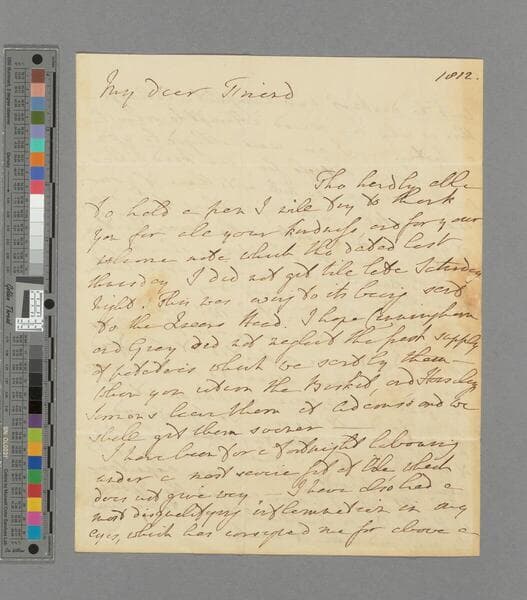 1812.
My dear Friend
Tho hardly able
to hold a pen I will try to thank
you for all your kindness, and for your
welcome note which tho dated last
thursday I did not get till late Saturday
Night. This was owing to its being sent
to the Queens Head. I hope Cunningham
and Grey did not neglect the fresh supply
of potatoes which we sent by them —
When you return the Basket, and Horsley
Sermons leave them at and we
shall get them sooner —
I have been for a fortnight labouring
under a most severe fit of Bile which
does not give way — I have also had a
most disqualifying inflammation in my
eyes, which has consigned me for above a